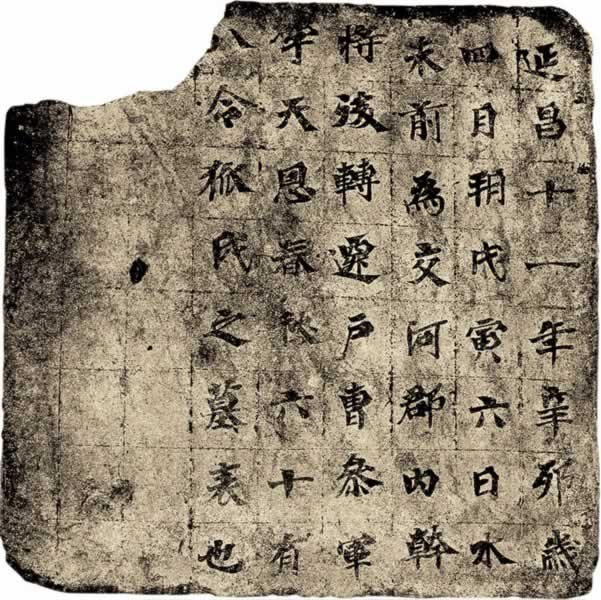 延昌十一年辛卯歲
四月朔戊寅六日水
未前為交河郡内幹
將後轉遷戶曹叅軍
字天恩春秋六十有
八令狐氏之墓表也